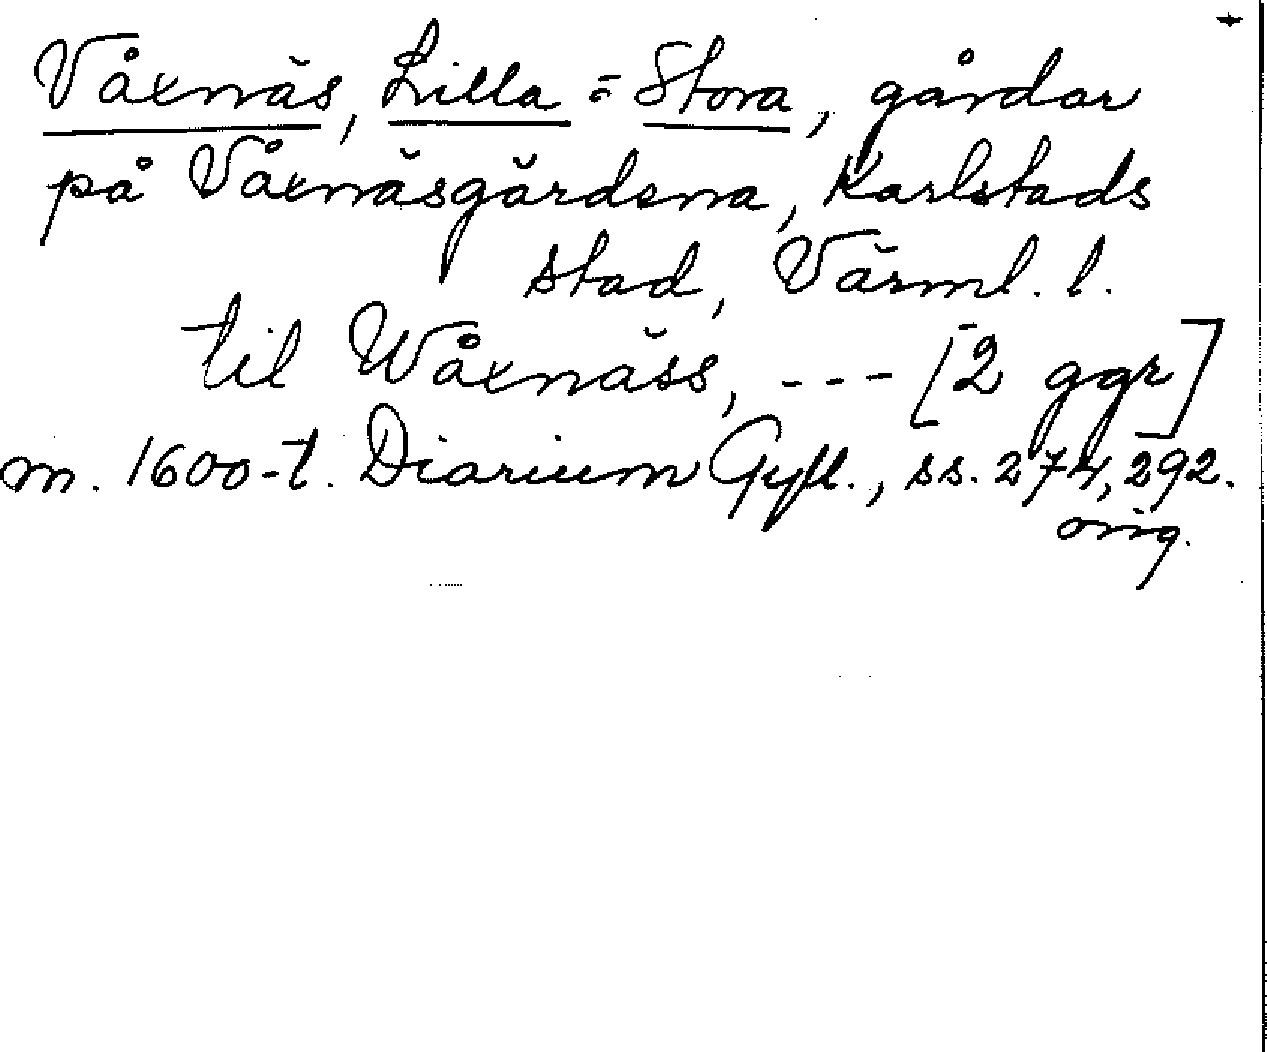 Våxnäs, Lilla = Stora, gårdar
på Våxnäsgärdena, Karlstads
stad, Värml. l.
til Wåxnäss, --- [2 ggr]
m. 1600-t. Diarium Gyll., ss. 274, 292.
orig.